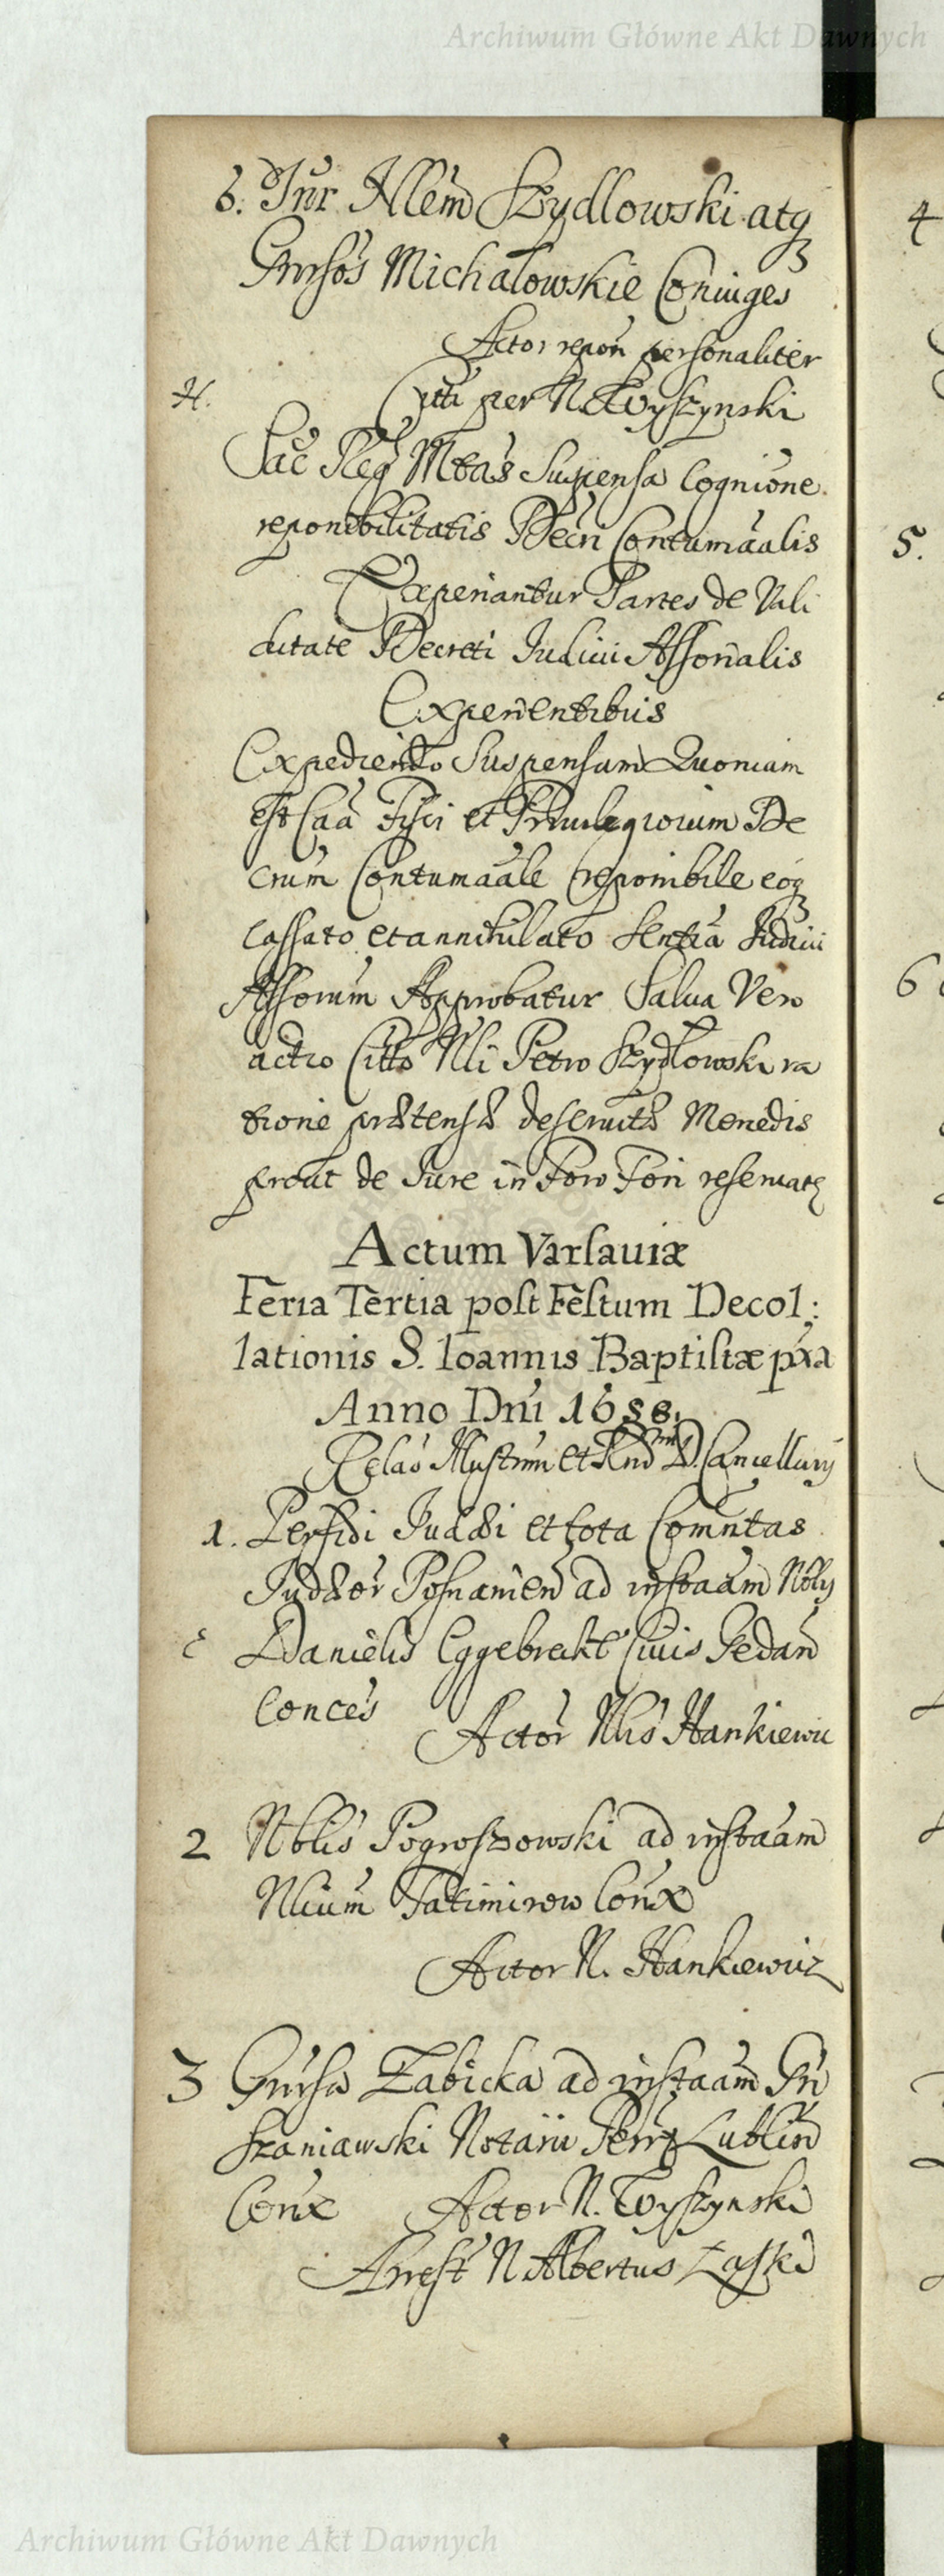 Archiwum Główne Akt Dawnych
6. Inr Nllem Szydlowski atq3
Gnrsos Michalowskie Coniuges
Actor repon personaliter
H. Citti per N. Twyszynski
Sac Reg Mtas Suspensa Cognione
reponibilitatis Decri Contumacialis
Experiantur Partes de Vali
ditate Decreti Iudicii Assorialis
Experientibus
Expediendo Suspensam Quoniam
est Caa Fisci et Privilegiorum De
crum Contumaciale reponibile eoq3
Cassato et annihilato Sentia Iudicii
Assorum Approbatur Salva Vero
actio Citto Nli Petro Szydlowski ra
tione prætensæ deservitæ Mercedis
prout de Iure in Foro Fori reservatz
Actum Varsaviæ
Feria Tertia post Festum Decol:
lationis S. Ioannis Baptistæ pxa
Anno Dni 1688.
Relao Illustrmi et Rndmi D. Cancellarij
1. Perfidi Iudæi et tota Commtas
Iudæor Posnanien ad instaam Nblis
c Danielis Eggebrecht Civis Gedan
Conces Actor Nlis Hankiewic
2 Nblis Pogroszowski ad instaam
Nlium Fatimirow Conx
Actor N. Hankiewicz
3 Gnrsa Zabicka ad instaam Gn
Szaniawski Notarii Terr Lublin
Conx Actor N. Twyszynski
Arrest N Albertus Laski
4
5.
6
Archiwum Główne Akt Dawnych